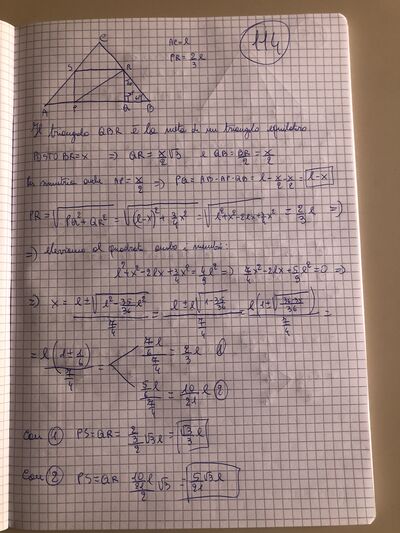 114
C
AC = l
PR = 2/3 l
S R
A P Q B
Il triangolo QBR è la metà di un triangolo equilatero
POSTO BR = x ⇒ QR = x/2 √3 e QB = BR/2 = x/2
Per simmetria anche AP = x/2 ⇒ PQ = AB - AP - QB = l - x/2 - x/2 = l - x
PR = √(PQ² + QR²) = √((l-x)² + 3/4 x²) = √(l² + x² - 2lx + 3/4 x²) = 2/3 l ⇒
⇒ eleviamo al quadrato ambo i membri:
l² + x² - 2lx + 3/4 x² = 4/9 l² ⇒ 7/4 x² - 2lx + 5/9 l² = 0 ⇒
⇒ x = (l ± √(l² - 35/36 l²))/(7/4) = (l ± l √(1 - 35/36))/(7/4) = l(1 ± √((36-35)/36))/(7/4) =
= l(1 ± 1/6)/(7/4) = (7/6 l)/(7/4) = 2/3 l ①
(5/6 l)/(7/4) = 10/21 l ②
Con ① PS = QR = (2/3)/2 √3 l = √3/3 l
Con ② PS = QR = (10/21 l)/2 √3 = 5√3 l/21